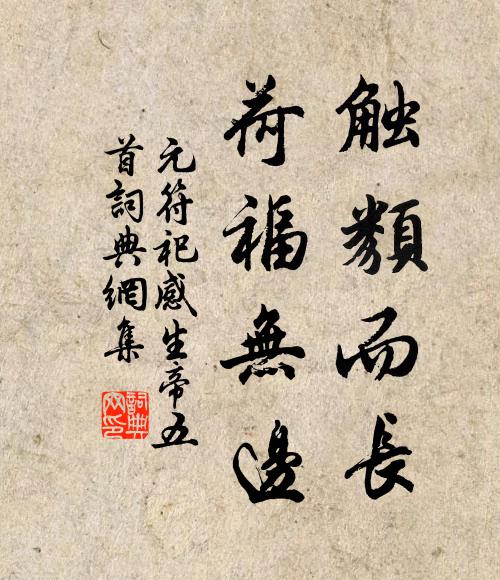 触類而長
荷福無邊
元符祀感生帝五
首詞典網集
詞典
网印